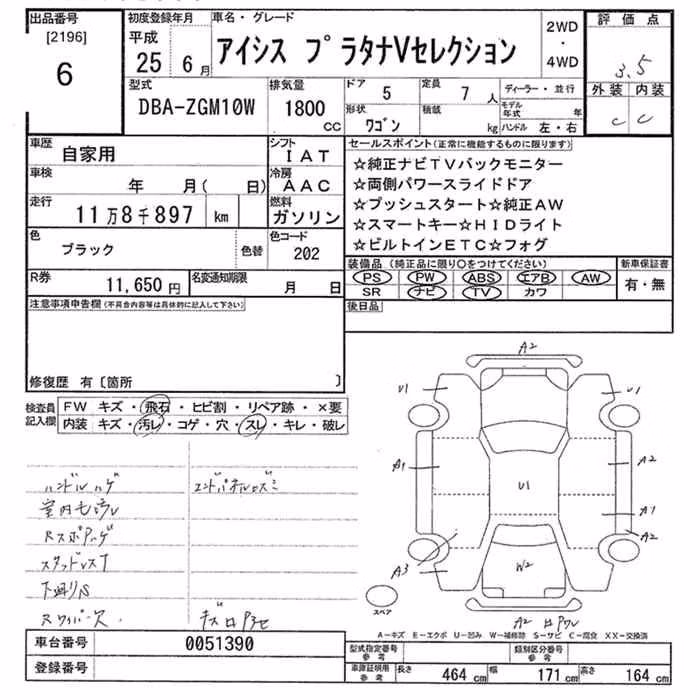 出品番号
[2196]
6
初度登録年月
平成
25 6月
車名・グレード
アイシス プラタナVセレクション
2WD
・
4WD
評価点
3.5
外装 内装
C C
型式
DBA-ZGM10W
排気量
1800
CC
ドア
5
定員
7 人
形状
ワゴン
積載
kg
ディーラー・並行
モデル年式 年
ハンドル 左・右
車歴
自家用
シフト
IAT
車検
年 月( 日)
冷房
AAC
走行
11万8千897 km
燃料
ガソリン
色
ブラック
色替
色コード
202
R券
11,650円
名変通知期限
月 日
セールスポイント(正常に機能するものに限ります)
☆純正ナビTVバックモニター
☆両側パワースライドドア
☆プッシュスタート☆純正AW
☆スマートキー☆HIDライト
☆ビルトインETC☆フォグ
装備品(純正品に限り○をつけてください)
PS PW ABS エアB AW
SR ナビ TV カワ
新車保証書
有・無
後日品
注意事項申告欄(不具合内容等は具体的に記入して下さい)
修復歴 有〔箇所 〕
検査員記入欄
FW キズ・飛石・ヒビ割・リペア跡・×要
内装 キズ・汚レ・コゲ・穴・スレ・キレ・破レ
ハンドルハゲ
室内モヨウ
スタッドレス
下廻りS
Rワイパー欠
A2
U1
U1
A1
A2
U1
A1
A2
A3
W2
A2
スペア
A－キズ E－エクボ U－凹み W－補修跡 S－サビ C－腐食 XX－交換済
車台番号
0051390
登録番号
型式指定番号
参考
類別区分番号
参考
車庫証明用
参考
長さ 464 cm 幅 171 cm 高さ 164 cm